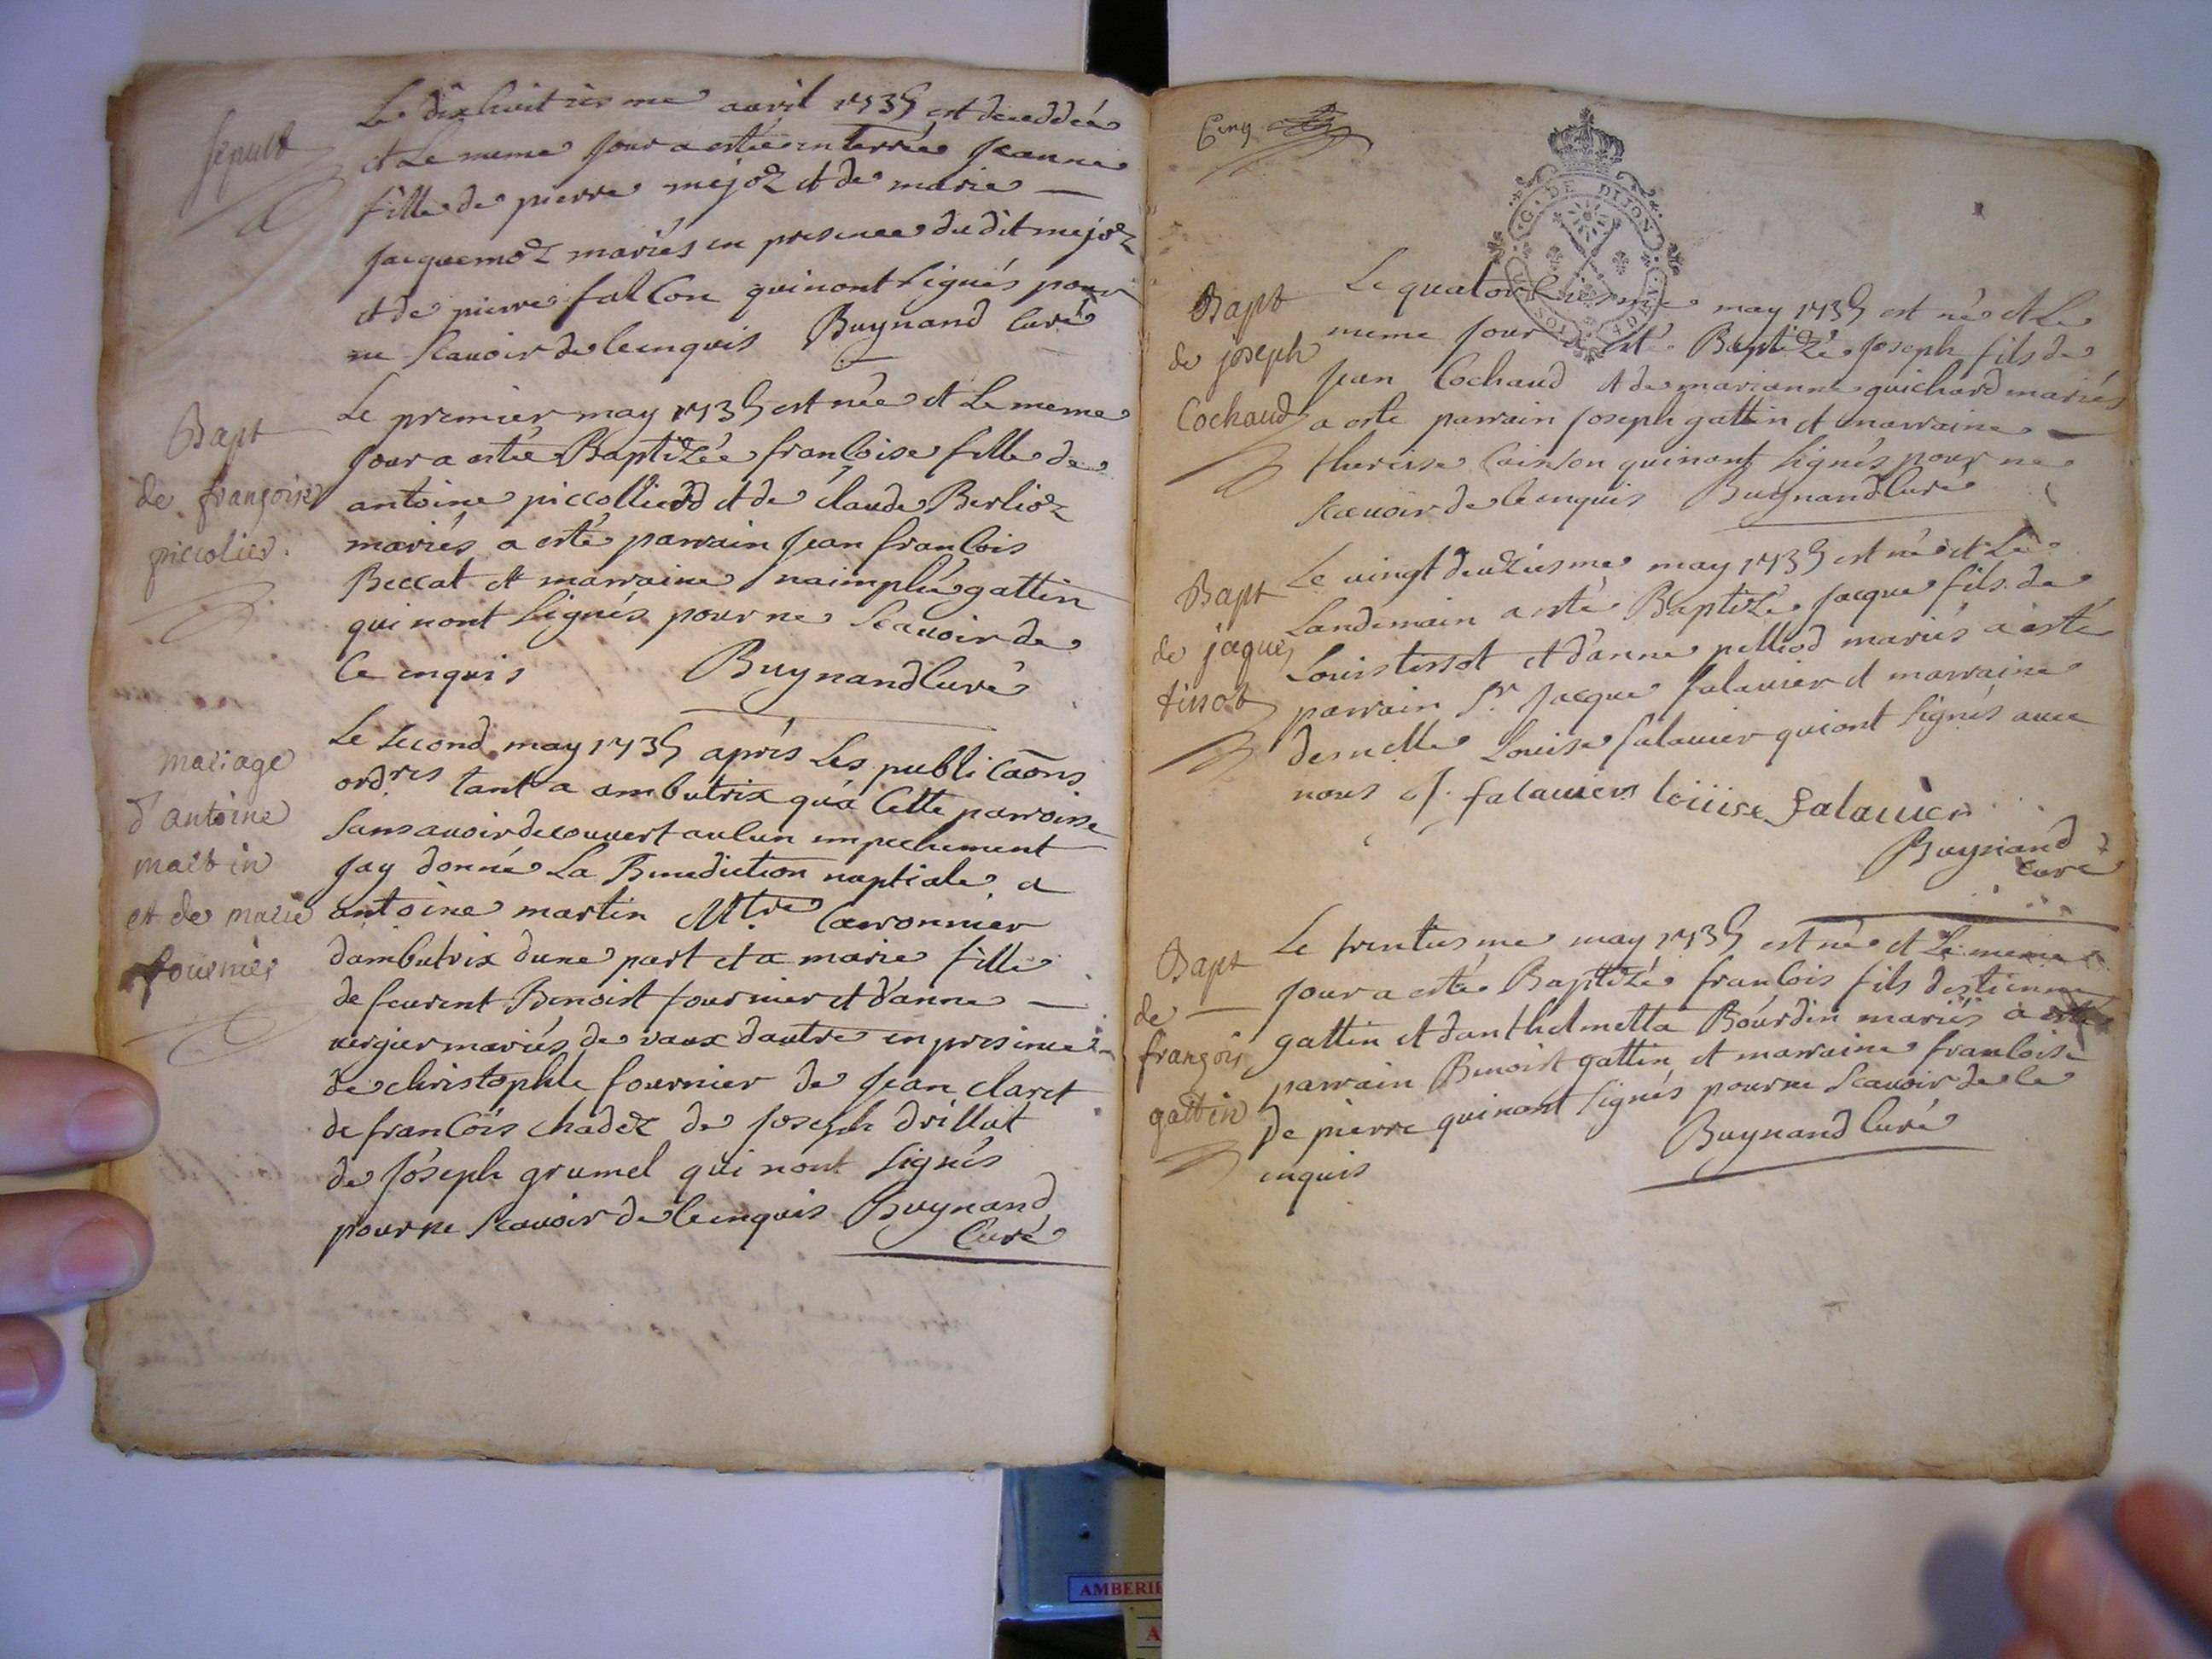 Sepult
Le dixhuitiesme avril 1735 est deceddée
et Le meme Jour a estée enterrée Jeanne
fille de pierre mejoz et de marie —
Jacquemoz mariés en presence dudit mejoz
et de pierre falcon qui nont signés pour
ne scavoir de ce enquis Buynand curé
Bapt
de françoise
piccolier.
Le premier may 1735 est née et Le meme
Jour a estée Baptizée francoise fille de
antoine piccollied et de claude Berlioz
mariés a esté parrain Jean francois
Beccat et marraine gattin
qui nont signés pour ne scavoir de
ce enquis Buynand curé
mariage
d'antoine
martin
et de marie
fournier
Le second may 1735 aprés Les publicaons
ordres tant a ambutrix qua Cette parroisse
sans avoir decouvert aucun impechement
Jay donné La Benediction nuptiale a
antoine martin Mtre Carronnier
dambutrix dune part et a marie fille
de feu Benoist fournier et danne —
vergier mariés de vaux dautre en presence
de christophle fournier de Jean claret
de francois chadez de Joseph drillut
de Joseph grumel qui nont signés
pour ne scavoir de ce enquis Buynand
Curé
Cinq
G. DE DIJON
Bapt
de joseph
Cochaud
Le quatorziesme may 1735 est né et Le
meme Jour a esté Baptizé Joseph fils de
Jean Cochaud et de marianne guichard mariés
a esté parrain Joseph gattin et marraine —
thereise qui nont signés pour ne
scavoir de ce enquis Buynand curé
Bapt
de jaques
tissot
Le vingt deuziesme may 1735 est né et Le
Landemain a esté Baptizé Jacque fils de
Louis tissot et danne pelliod mariés a esté
parrain Sr Jacque falavier et marraine
demelle Louise falavier qui ont signés avec
nous J. falavier loüise falavier
Buynand
curé
Bapt
de —
françois
gattin
Le trentiesme may 1735 est né et Le meme
Jour a esté Baptizé francois fils destienne
gattin et danthelmetta Bourdin mariés a esté
parrain Benoist gattin et marraine francoise
De pierre qui nont signés pour ne scavoir de ce
enquis Buynand curé
AMBERIE
A